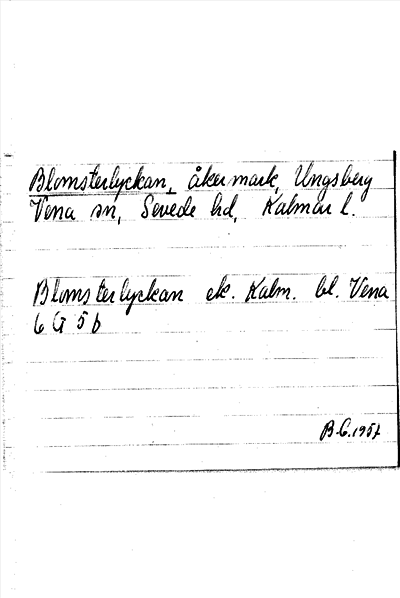 Blomsterlyckan, åkermark, Ungsberg
Vena sn, Sevede hd, Kalmar l.
Blomsterlyckan ek. Kalm. bl. Vena
6 G 5 b
B.G. 1957